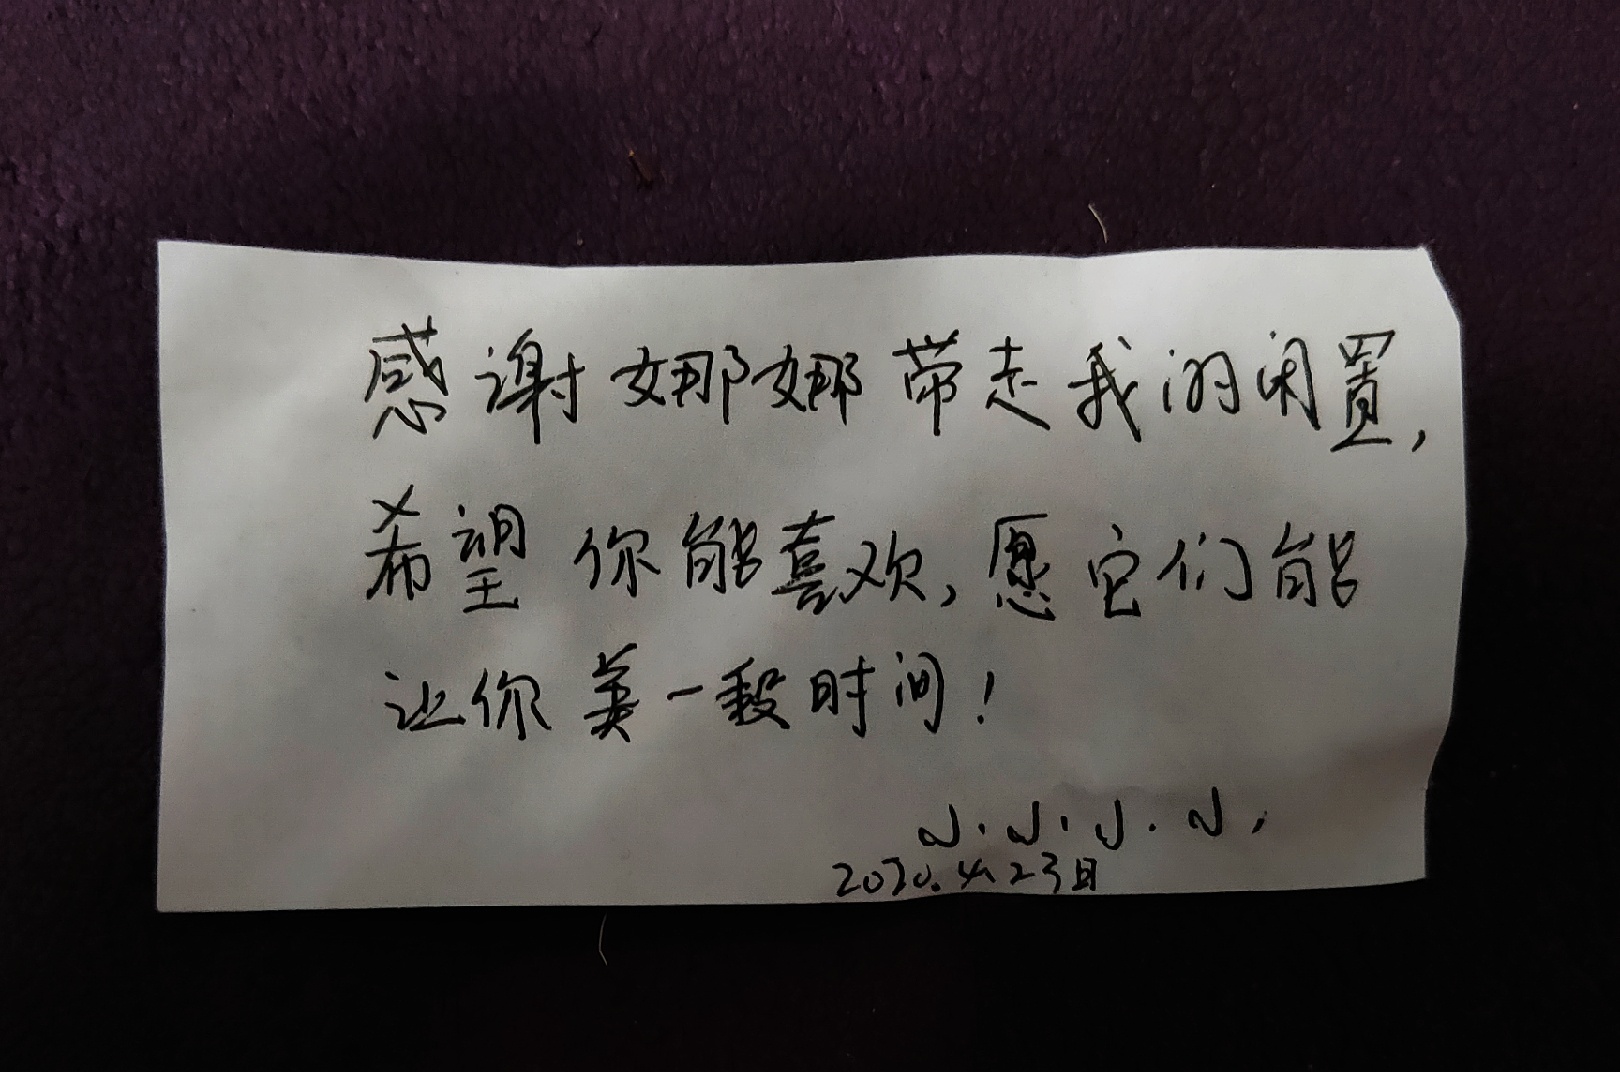 感谢娜娜带走我的闲置，
希望你能喜欢，愿它们能
让你美一段时间！
小.小.小.小.
2020.4.23日